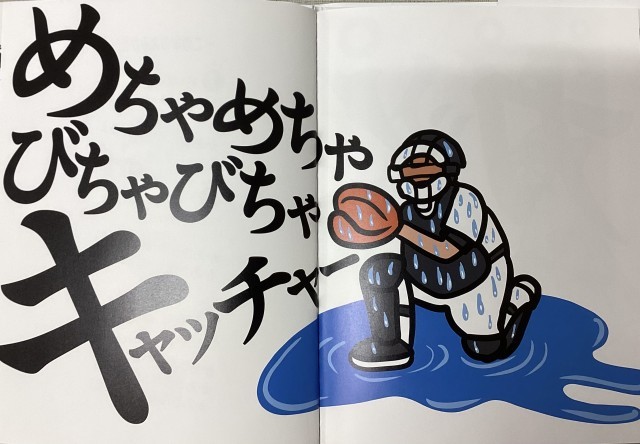 めちゃめちゃ
びちゃびちゃ
キャッチャー